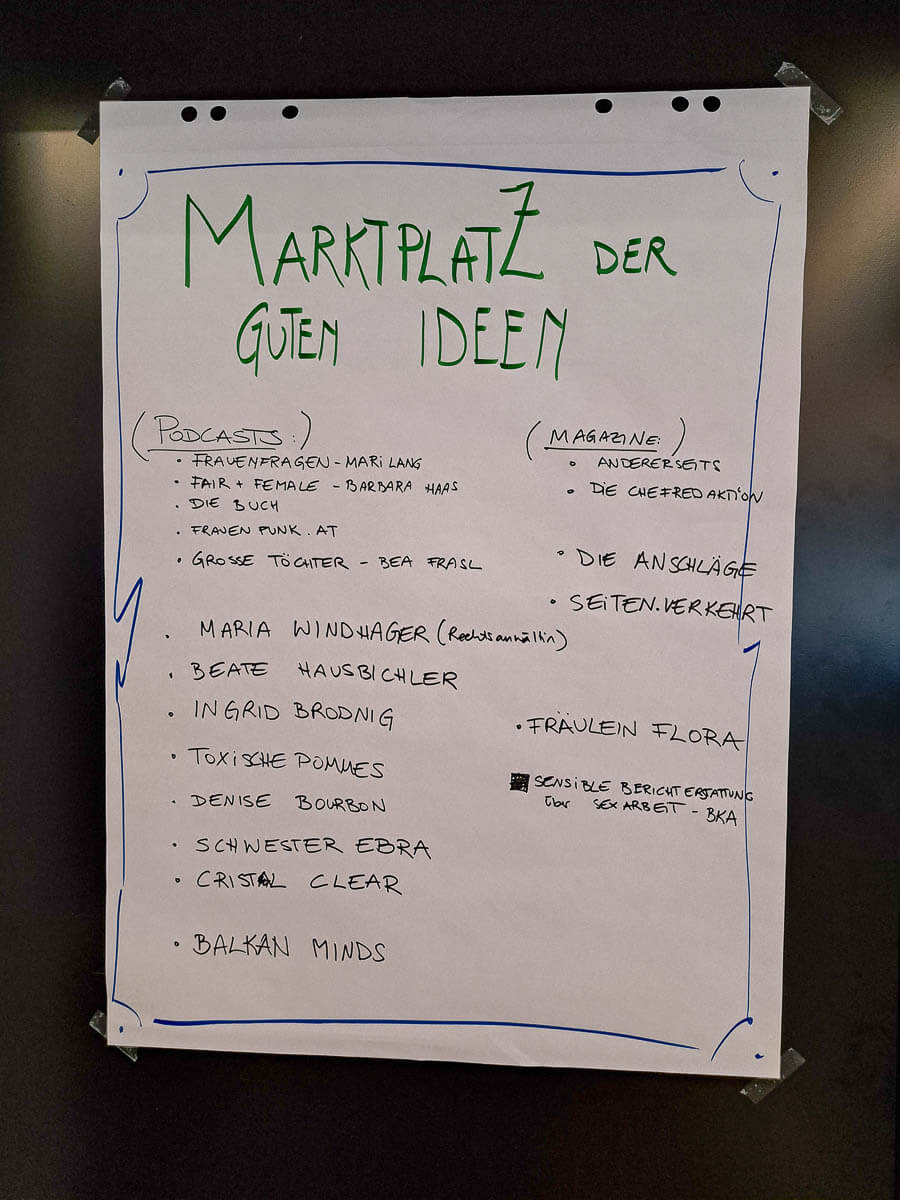 MARKTPLATZ DER
GUTEN IDEEN
(PODCASTS:)
• FRAUENFRAGEN - MARI LANG
• FAIR + FEMALE - BARBARA HAAS
• DIE BUCH
• FRAUEN FUNK . AT
• GROSSE TÖCHTER - BEA FRASL
• MARIA WINDHAGER (Rechtsanwältin)
• BEATE HAUSBICHLER
• INGRID BRODNIG
• TOXISCHE POMMES
• DENISE BOURBON
• SCHWESTER EBRA
• CRISTAL CLEAR
• BALKAN MINDS
(MAGAZINE:)
• ANDERERSEITS
• DIE CHEFREDAKTION
• DIE ANSCHLÄGE
• SEITEN.VERKEHRT
• FRÄULEIN FLORA
■ SENSIBLE BERICHTERSTATTUNG
über SEXARBEIT - BKA